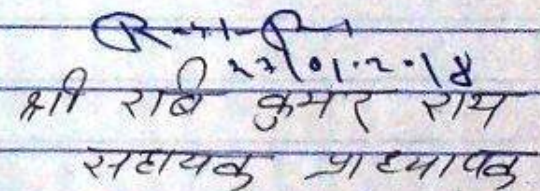 27/01.2.18
श्री राबी कुमार राय
सहायक प्राध्यापक